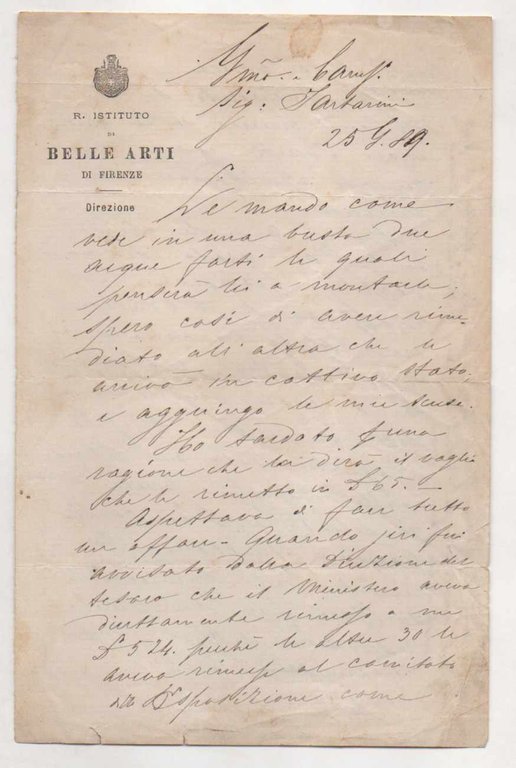 R. ISTITUTO
DI
BELLE ARTI
DI FIRENZE
Direzione
Gmo. e Caris.
Sig. Tartarini
25 G. 89.
Le mando come
vede in una busta due
acque forti le quali
penserà lei a montarle;
spero così di avere rime
diato all'altra che le
arrivò in cattivo stato,
e aggiungo le mie scuse.
Ho tardato p una
ragione che lei dirà il vaglia
che le rimetto in £65.—
Aspettava di far tutto
un affare - Quando jeri fui
avvisato dalla Direzione del
tesoro che il Ministero aveva
direttamente rimesso a me
£ 524. perchè le altre 30 le
aveva rimesse al comitato
Esposizione come